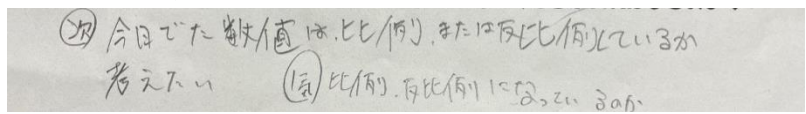 次 今日でた数値は、比例、または反比例しているか
考えたい 気 比例、反比例になっているのか